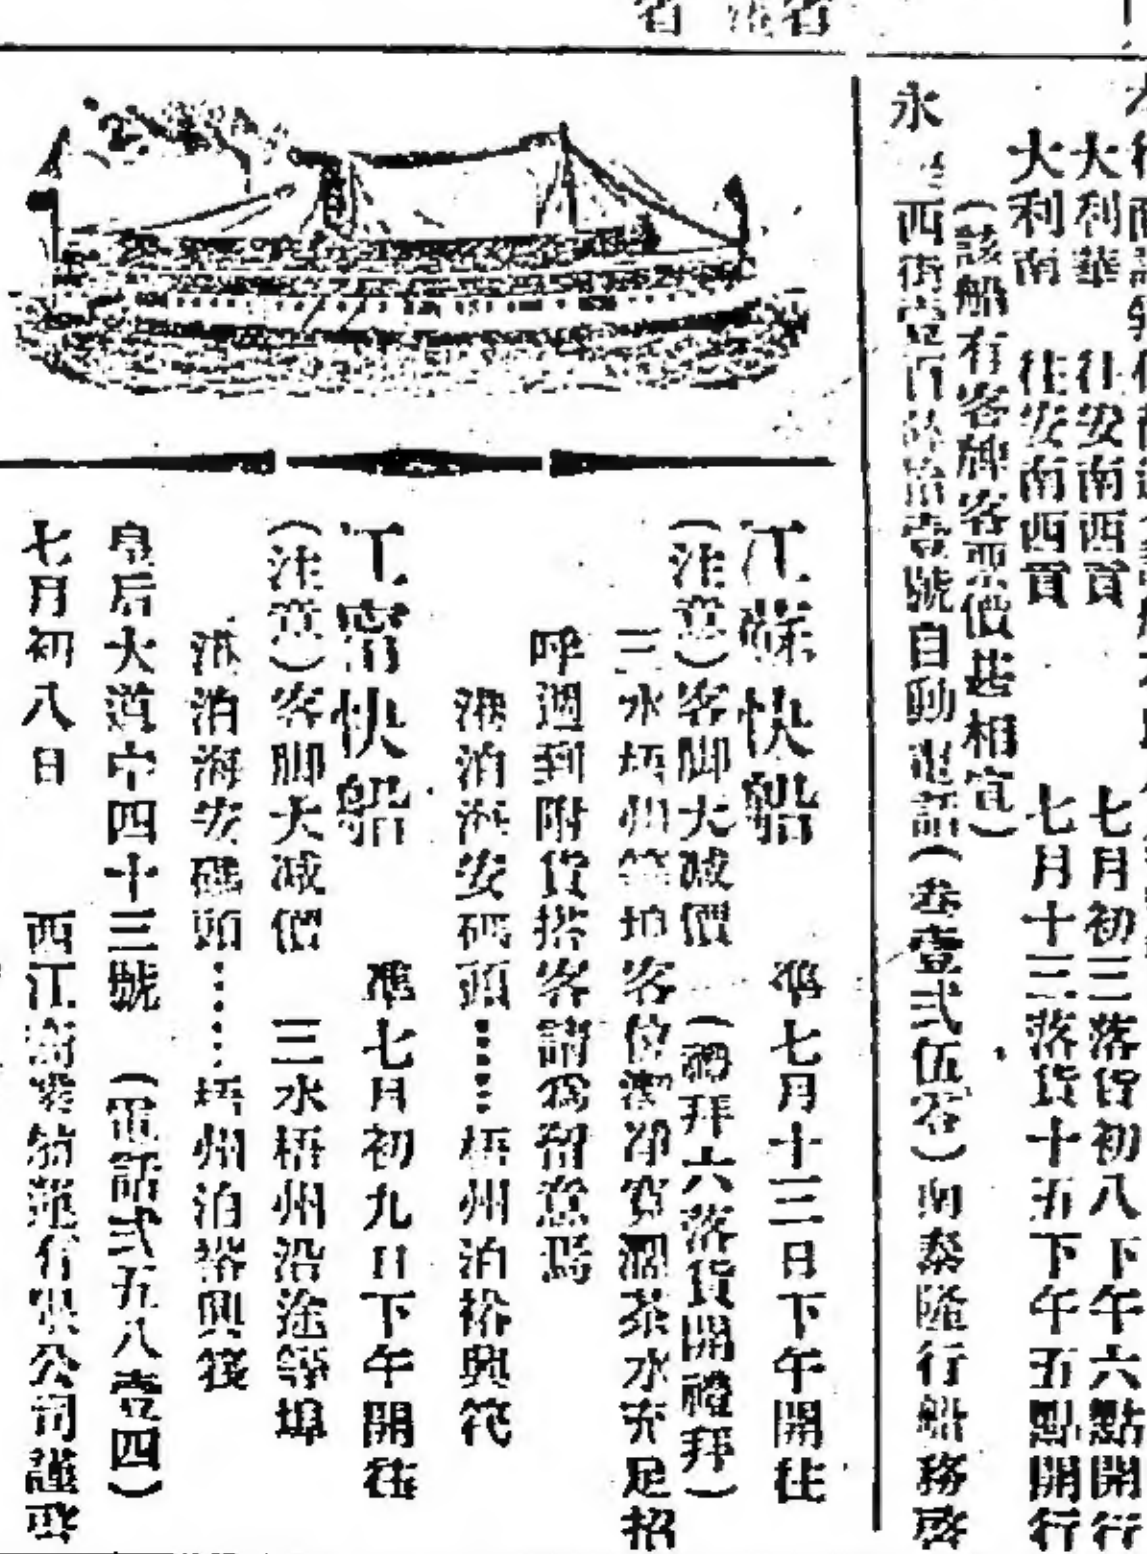 大利華　往安南西貢　七月初三落貨初八下午六點開行
大利南　往安南西貢　七月十三落貨十五下午五點開行
（該船有客牌客票價甚相宜）
永 西街壹百 拾壹號自動電話（ 壹弍伍 ） 泰隆行船務啓
江蘇快船　準七月十三日下午開往
（注意）客脚大减價　（禮拜六落貨開禮拜）
三水梧州等埠客位潔净寬濶茶水充足招
呼週到附貨搭客請爲留意焉
港泊海安碼頭……梧州泊裕興筏
江寗快船　準七月初九日下午開往
（注意）客脚大减價　三水梧州沿途等埠
港泊海安碼頭……梧州泊裕興筏
皇后大道中四十三號　（電話弍五八壹四）
七月初八日　西江 公司謹啓